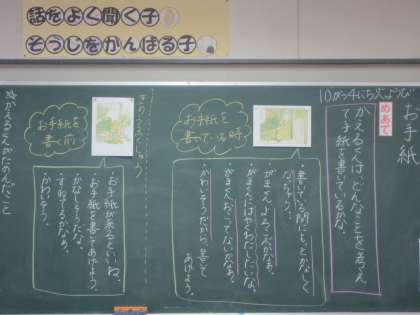 話をよく聞く子
そうじをがんばる子
10がつ4にち火ようび
お手紙
めあて
かえるくんは、どんなことを考え
て手紙を書いているかな。
お手紙を
書いている時
書いている間にも、とかなしく
なっちゃう。
がまくん、よろこぶかなぁ。
がまくんにはやくわたしたいな。
がまくん、おこってないかなぁ。
かわいそうだから、書いて
あげよう。
お手紙を
書く前
お手紙が来るといいね。
お手紙を書いてあげよう。
かなしそうだな。
すねてるかなぁ。
かわいそう。
かえるくんがたのんだこと